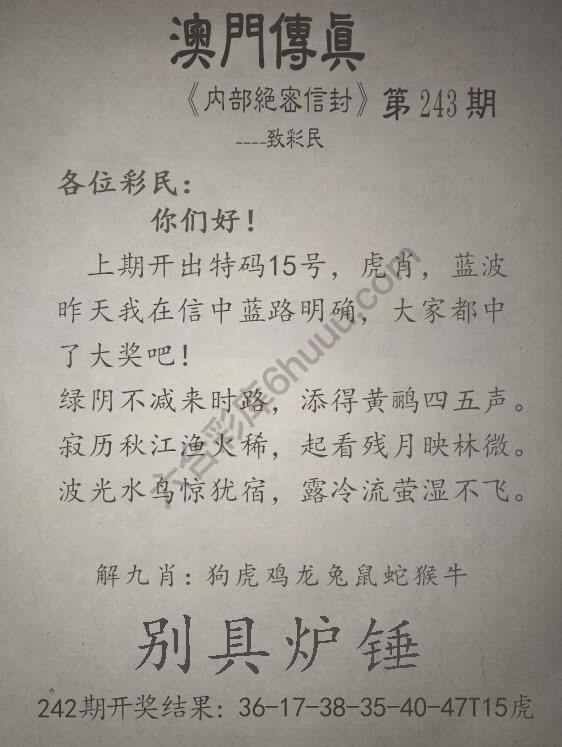 澳門傳眞
《内部絕密信封》第243期
----致彩民
各位彩民：
你们好！
上期开出特码15号，虎肖，蓝波
昨天我在信中蓝路明确，大家都中
了大奖吧！
绿阴不减来时路，添得黄鹂四五声。
寂历秋江渔火稀，起看残月映林微。
波光水鸟惊犹宿，露冷流萤湿不飞。
解九肖：狗虎鸡龙兔鼠蛇猴牛
别具炉锤
242期开奖结果：36-17-38-35-40-47T15虎
六合彩库6huuu.com